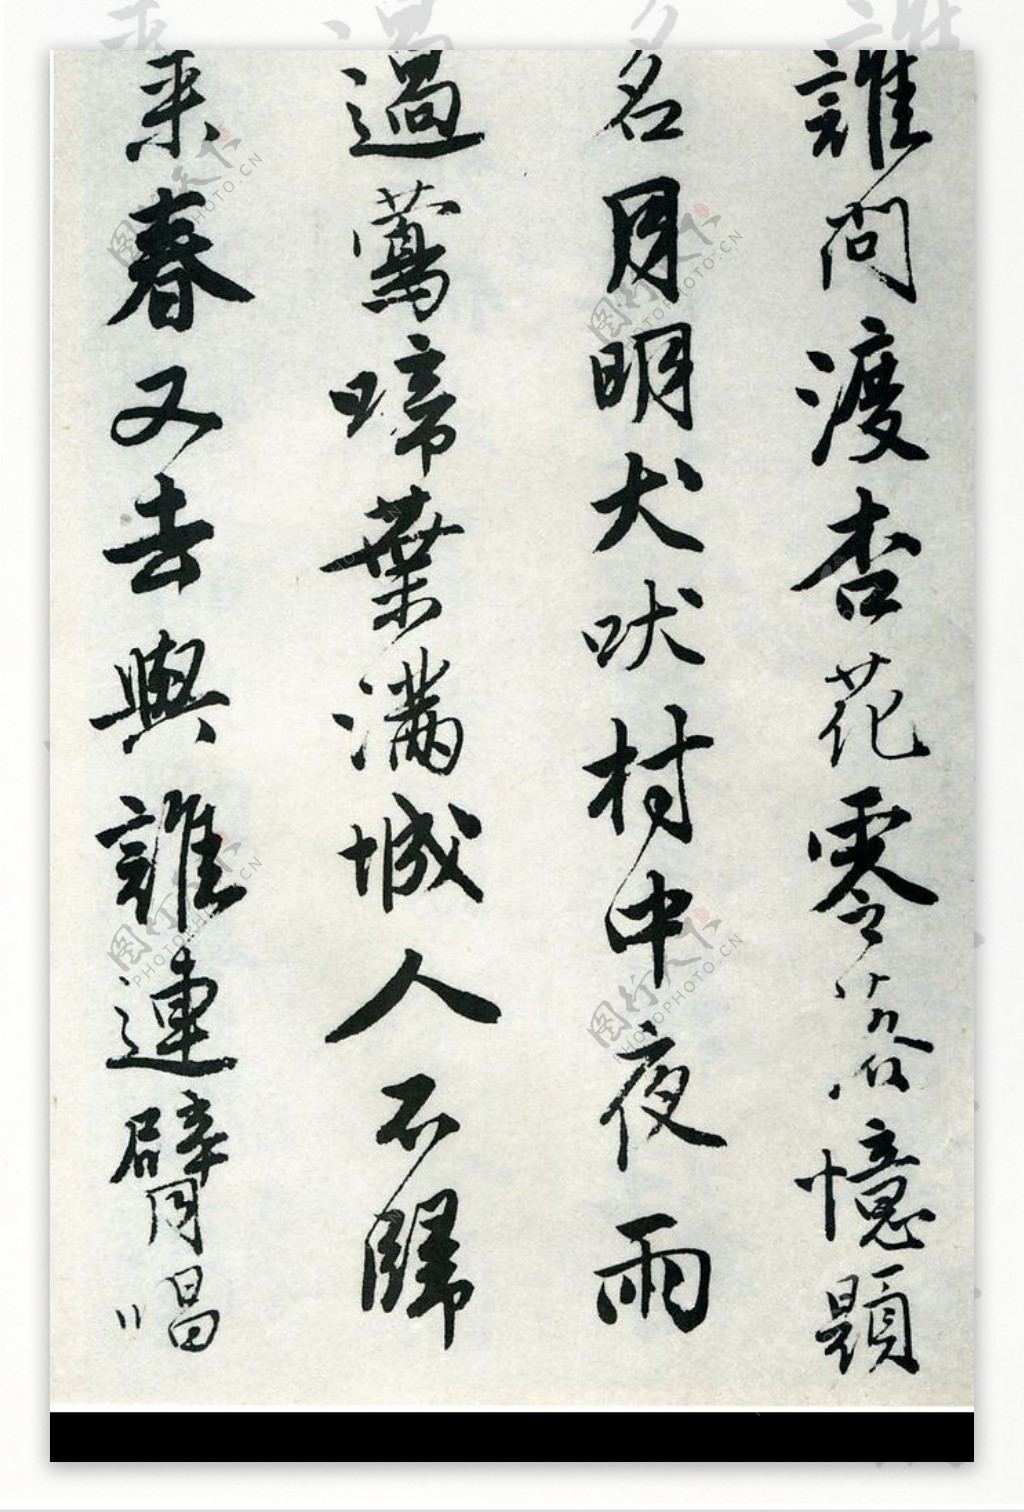 誰問渡杏花零落憶題
名月明犬吠村中夜雨
過鶯啼葉滿城人不歸
來春又去與誰連臂唱